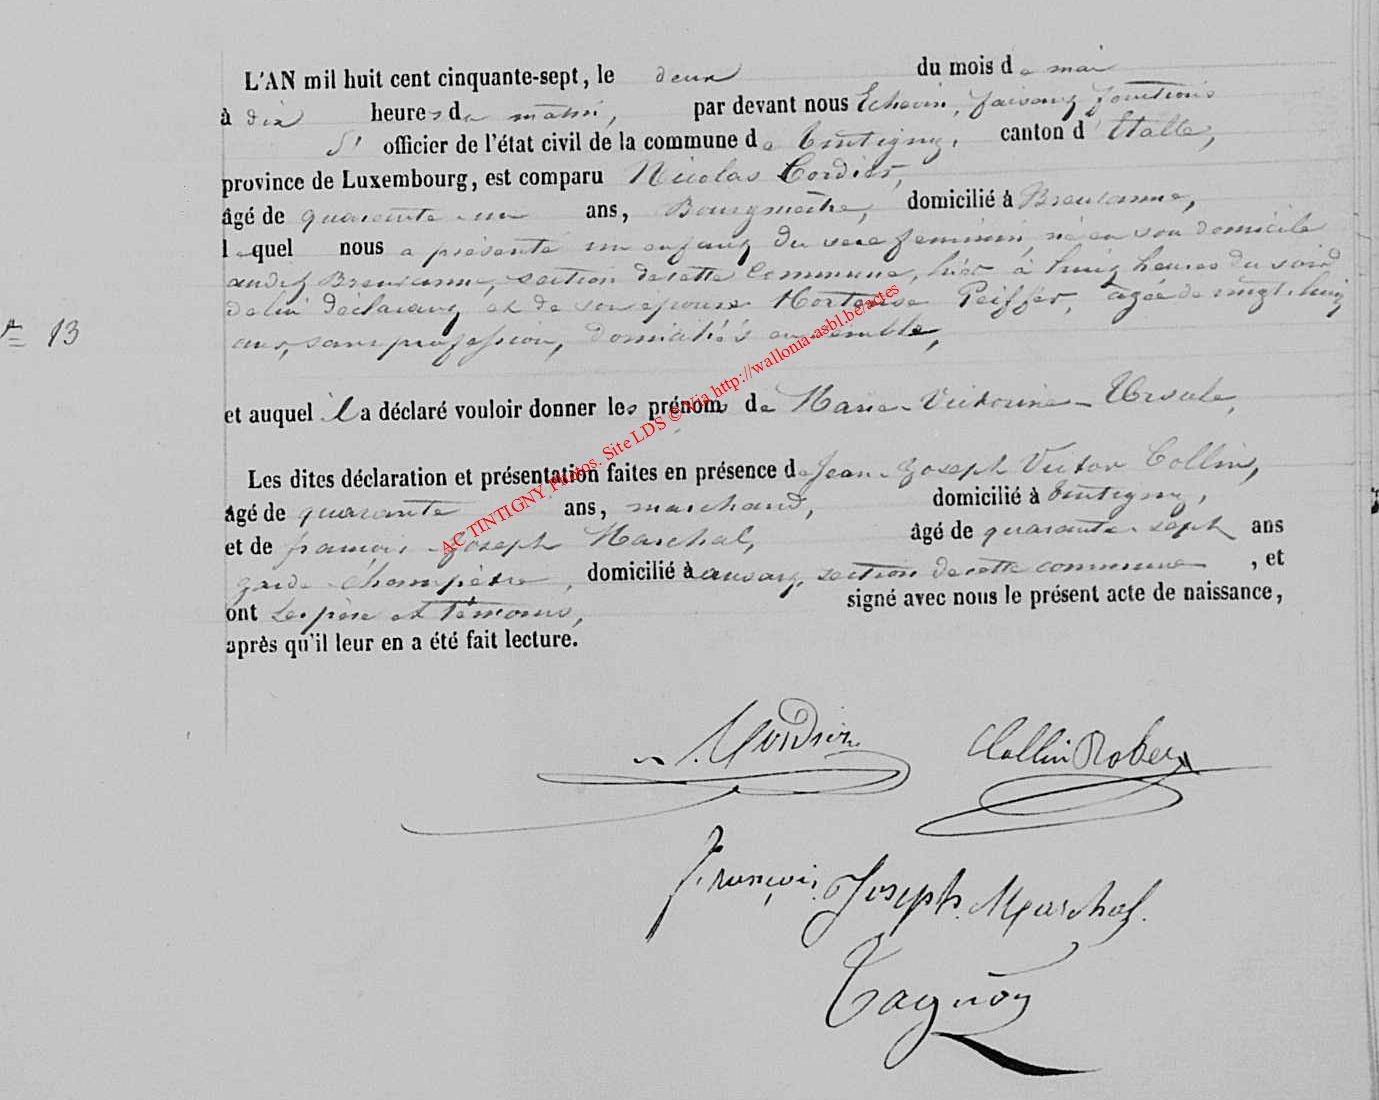 L'AN mil huit cent cinquante-sept, le deux du mois de mai
à dix heures du matin, par devant nous Echevin, faisant fonctions
d' officier de l'état civil de la commune de Tintigny, canton d'Etalle,
province de Luxembourg, est comparu Nicolas Cordier,
âgé de quarante-un ans, Bourgmestre, domicilié à Breuvanne,
lequel nous a présenté un enfant du sexe féminin, né en son domicile
audit Breuvanne, section de cette Commune, hier à huit heures du soir
de lui déclarant et de son épouse Hortense Peiffer, âgée de vingt-huit
ans, sans profession, domiciliés ensemble,
13
et auquel il a déclaré vouloir donner les prénoms de Marie-Victorine-Ursule,
Les dites déclaration et présentation faites en présence de Jean-Joseph Victor Collin,
âgé de quarante ans, marchand, domicilié à Tintigny,
et de françois Joseph Marchal, âgé de quarante-sept ans
garde-Champêtre, domicilié à ansart, section de cette commune, et
ont Les père et témoins, signé avec nous le présent acte de naissance,
après qu'il leur en a été fait lecture.
AC TINTIGNY Photos. Site LDS © Via http://wallonia-asbl.be/actes
N. Cordier Collin Rober
François Joseph Marchal.
Tagnon